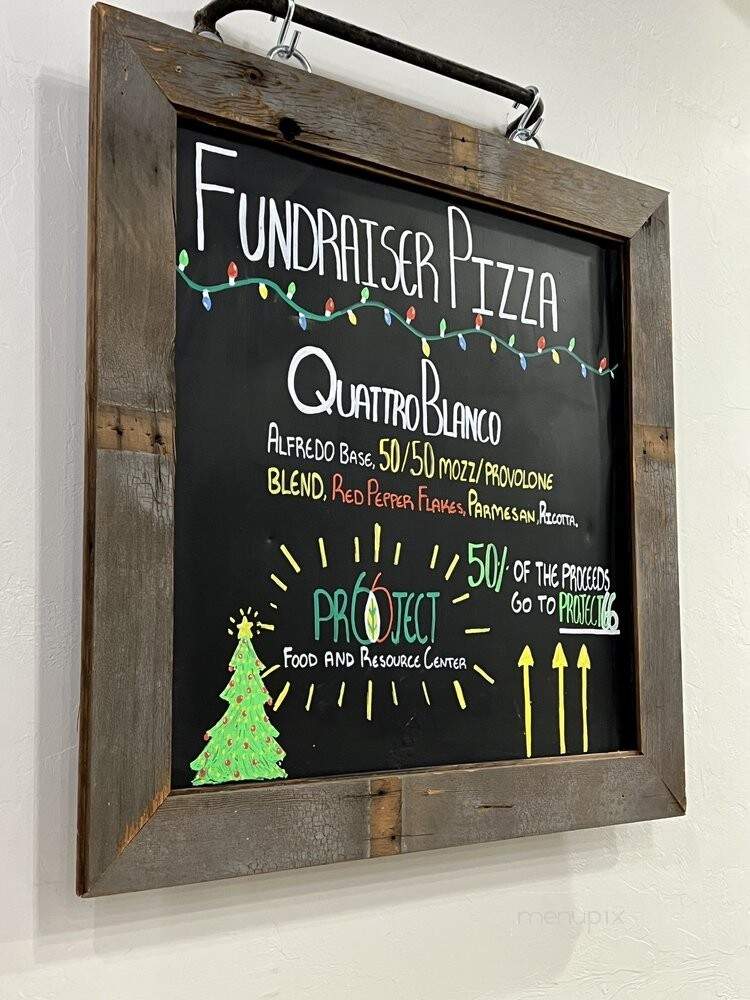 FUNDRAISER PIZZA
QUATTRO BLANCO
ALFREDO BASE, 50/50 MOZZ/PROVOLONE
BLEND, RED PEPPER FLAKES, PARMESAN, RICOTTA.
50% OF THE PROCEEDS
GO TO PROJECT 66
PR66JECT
FOOD AND RESOURCE CENTER
menupix